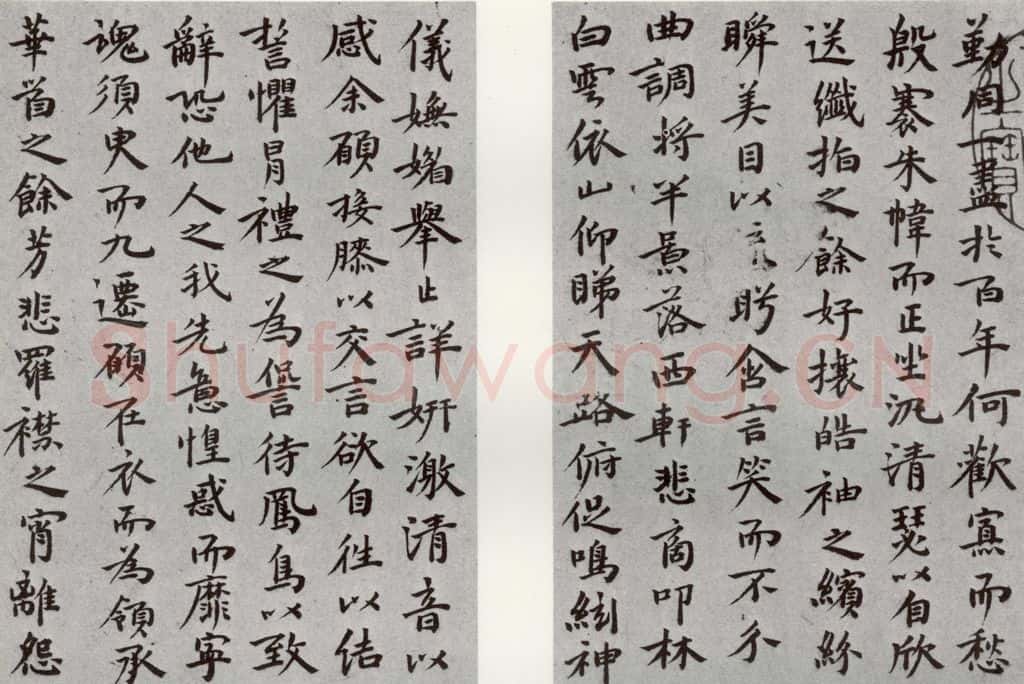 勤同一盡於百年何歡寡而愁
殷褰朱幃而正坐汎清瑟以自欣
送纖指之餘好攘皓袖之繽紛
瞬美目以眄含言笑而不分
曲調將半景落西軒悲商叩林
白雲依山仰睇天路俯促鳴絃神
儀嫵媚舉止詳妍激清音以
感余願接膝以交言欲自往以結
誓懼冒禮之為愆待鳳鳥以致
辭恐他人之我先意惶惑而靡寧
魂須臾而九遷願在衣而為領承
華首之餘芳悲羅襟之宵離怨
Shufawang.CN